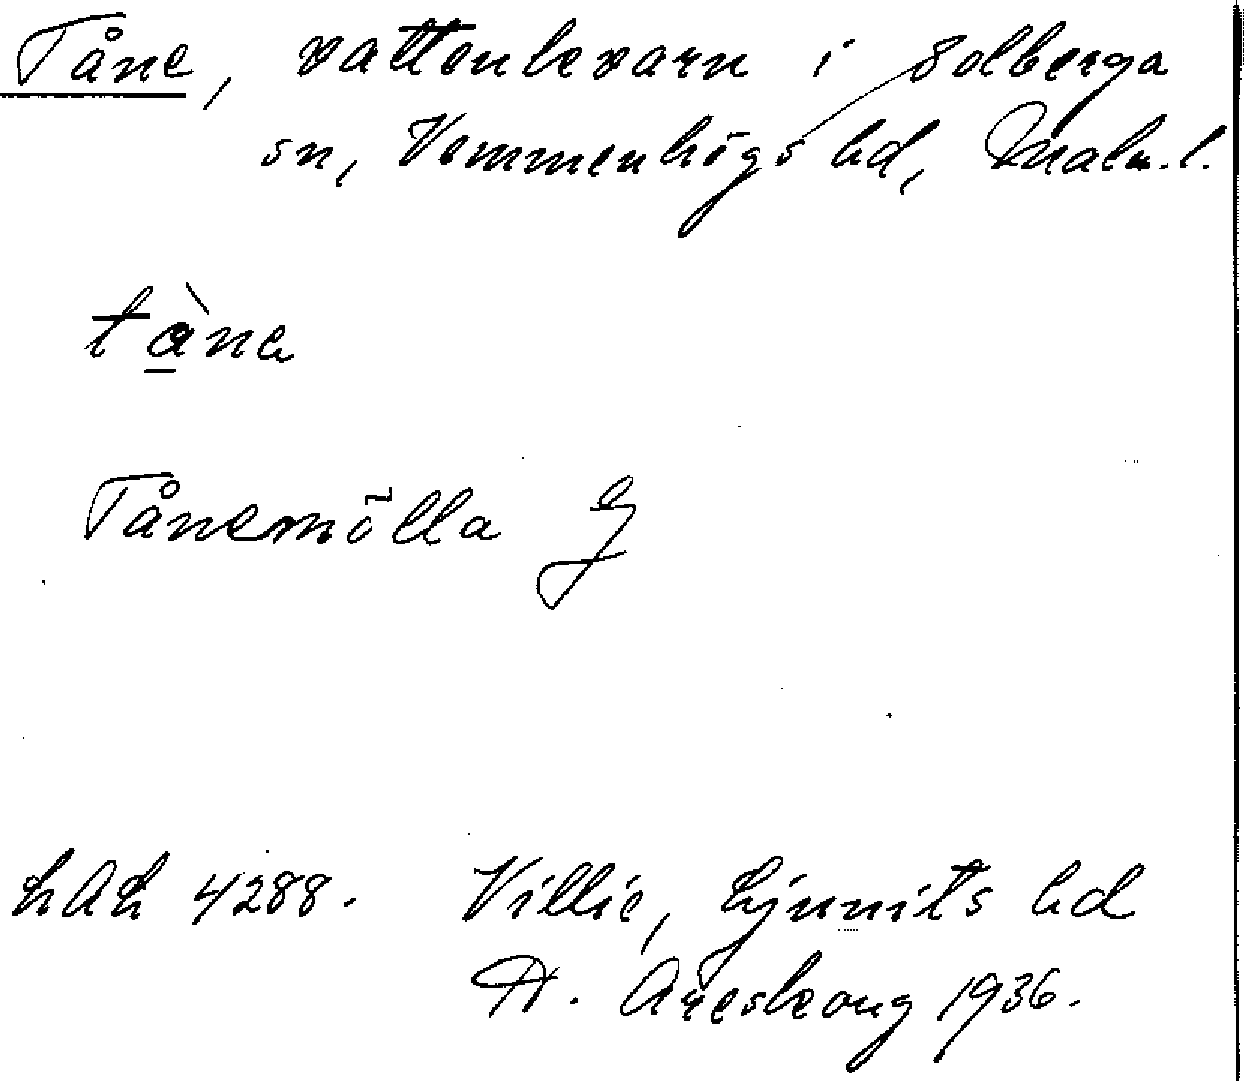 Tåne, vattenkvarn i Solberga
sn, Vemmenhögs hd, Malm. l.
tåna
Tånemölla
LAL 4288. Villie, Ljunits hd
A. Areskoug 1936.